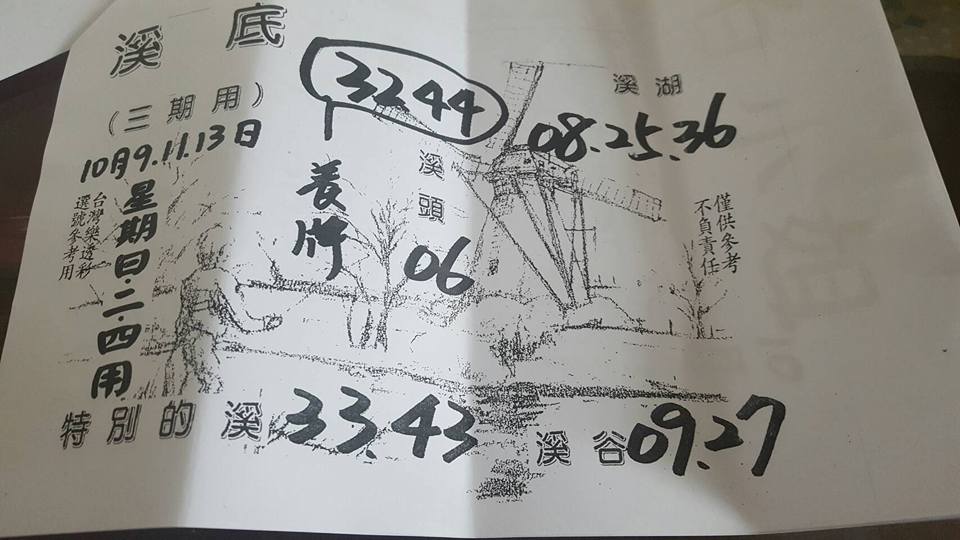 溪底
(三期用)
10月9.11.13日
星期日.二.四用
台灣樂透彩
選號參考用
3244
養牌
溪頭
06
溪湖
08.25.36
僅供參考
不負責任
特別的溪 33.43
溪谷 09.27